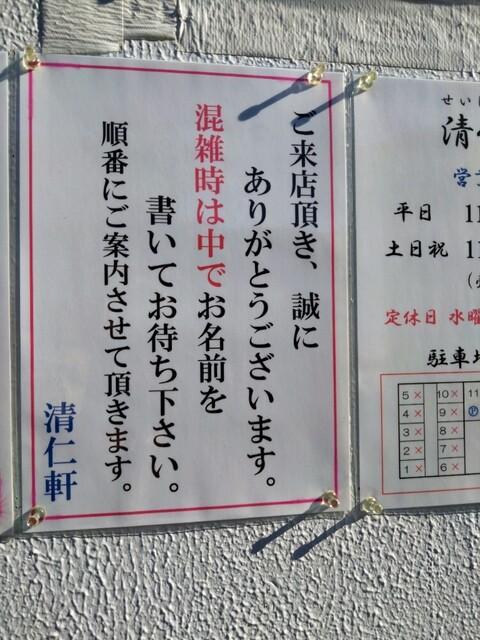 ご来店頂き、誠に
ありがとうございます。
混雑時は中でお名前を
書いてお待ち下さい。
順番にご案内させて頂きます。
清仁軒
せい
清
営
平日 11
土日祝 11
定休日 水曜
駐車場
5× 10× 11
4× 9× Ⓟ
3× 8×
2× 7×
1× 6×